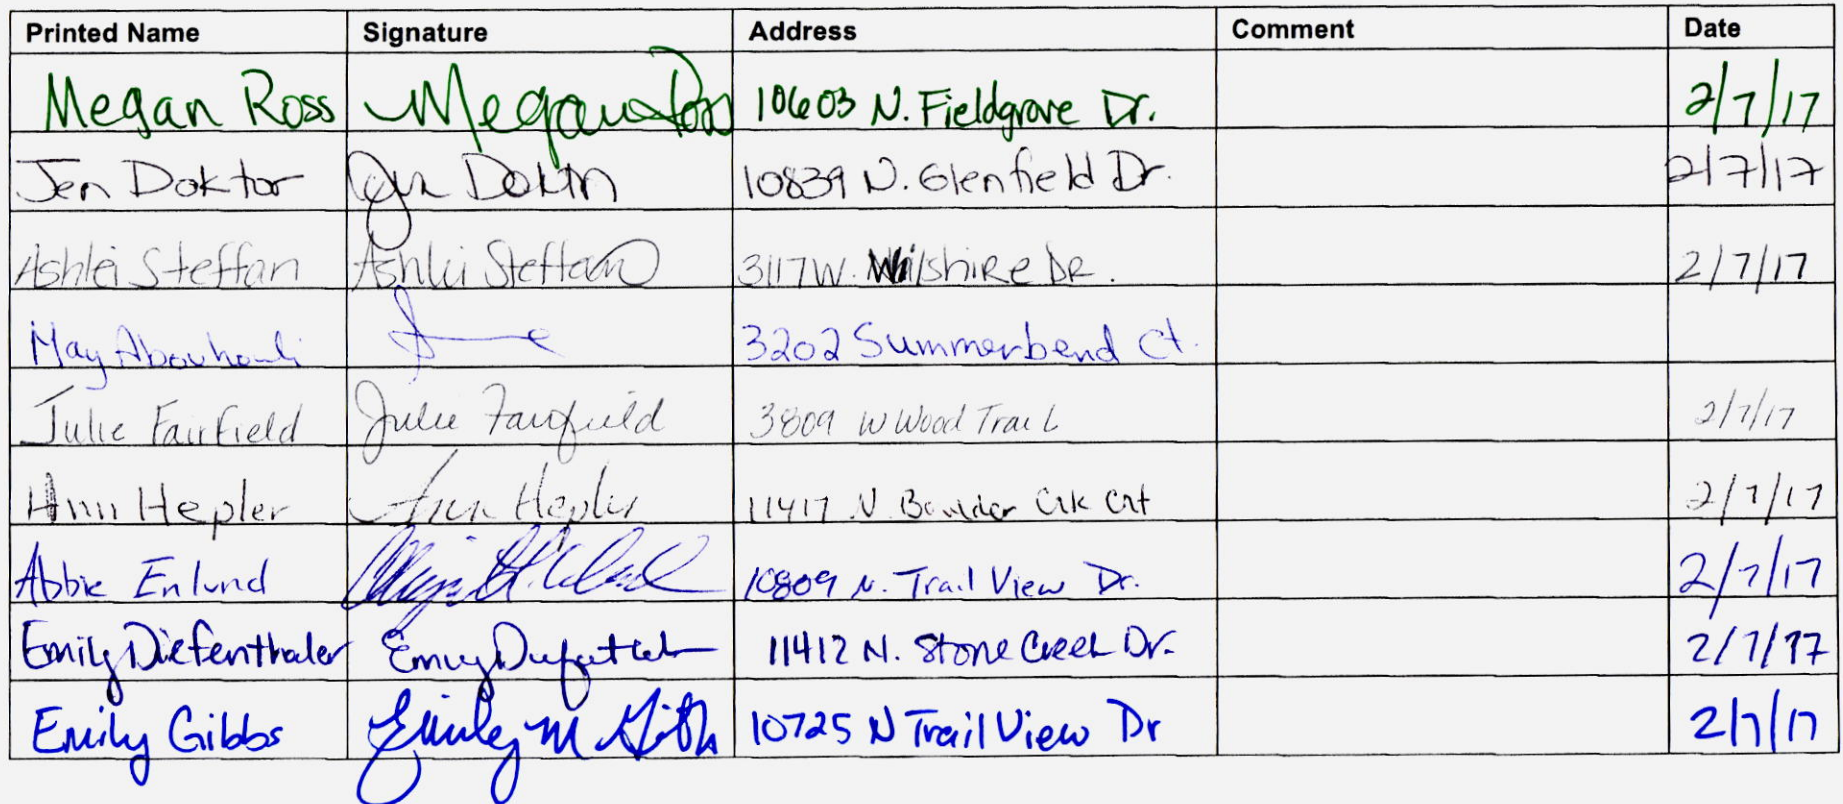 Printed Name Signature Address Comment Date
Megan Ross Megan Ross 10603 N. Fieldgrove Dr. 2/7/17
Jen Doktor Jen Doktor 10839 N. Glenfield Dr. 2/7/17
Ashlei Steffan Ashlei Steffan 3117 W. Wilshire DR. 2/7/17
May 3202 Summerbend Ct.
Julie Fairfield Julie Fairfield 3809 W Wood Trail 2/7/17
Ann Hepler Ann Hepler 11417 N. Boulder Crk Crt 2/7/17
Abbie Enlund 10809 N. Trail View Dr. 2/7/17
Emily Diefenthaler Emily 11412 N. Stone Creek Dr. 2/7/17
Emily Gibbs Emily M Gibbs 10725 N Trail View Dr 2/7/17